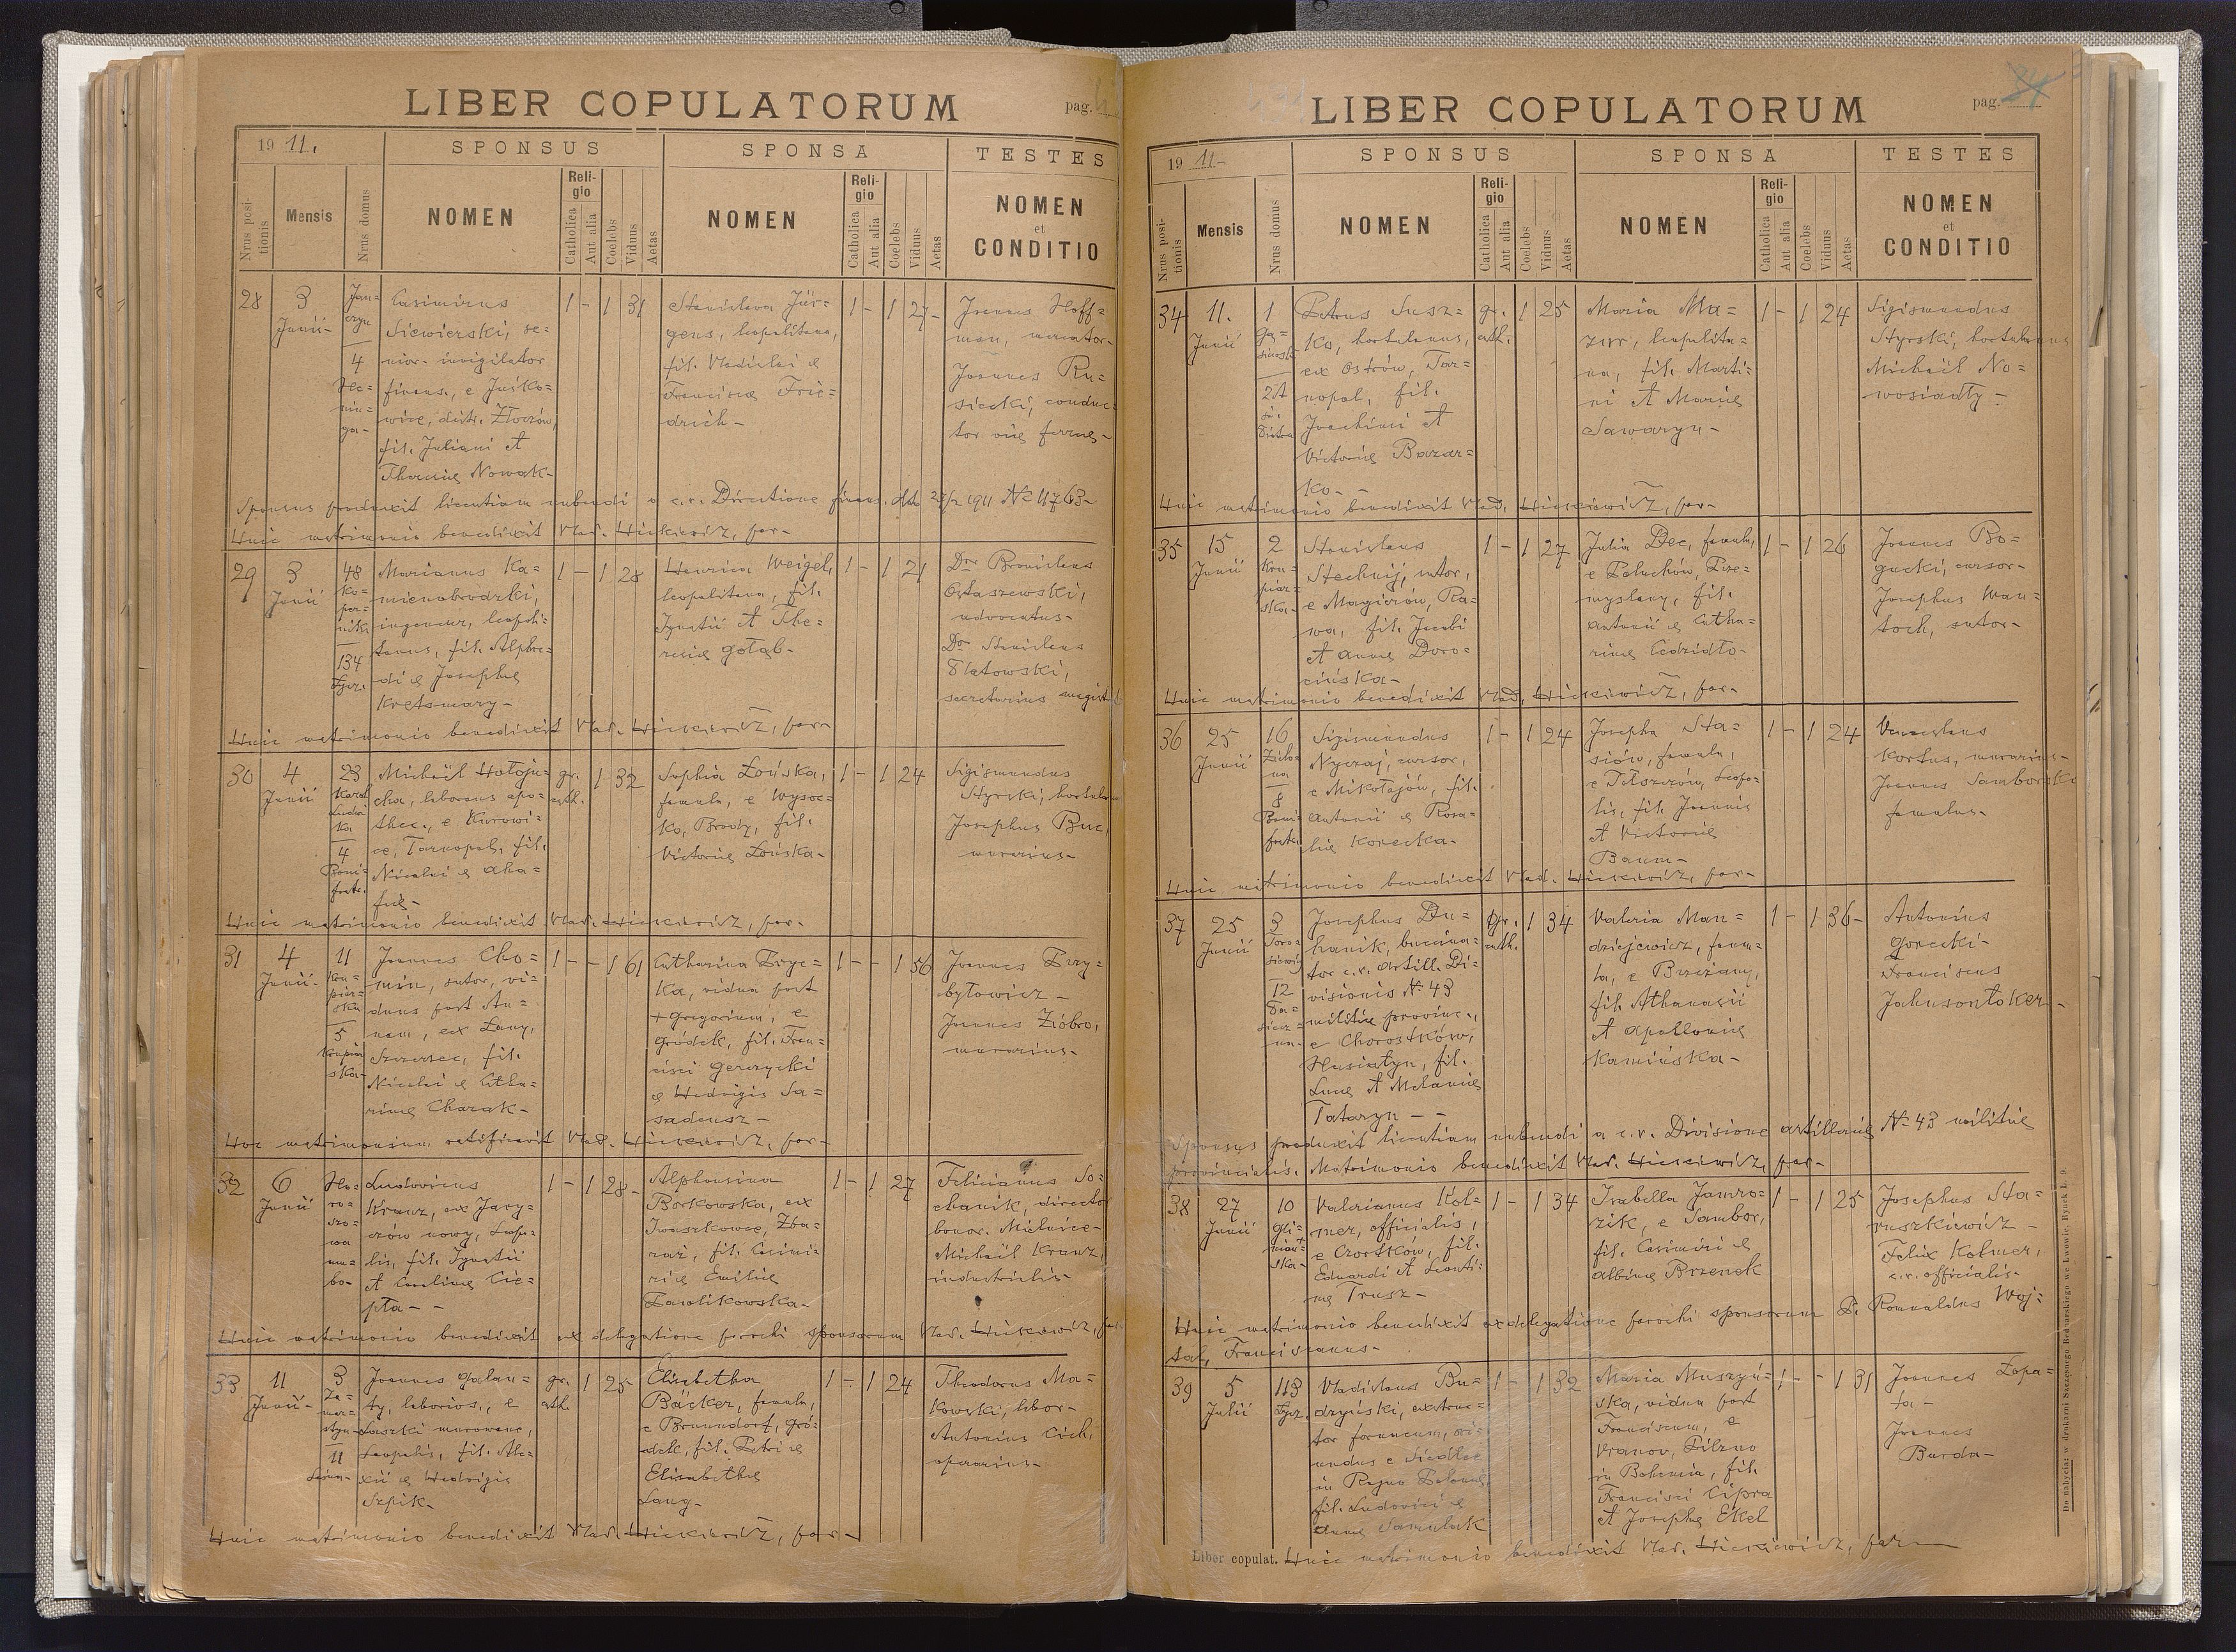 LIBER COPULATORUM
pag.
19 11.
SPONSUS
SPONSA
TESTES
Nrus positionis
Mensis
Nrus domus
NOMEN
Religio
Catholica
Aut alia
Coelebs
Viduus
Aetas
NOMEN
Religio
Catholica
Aut alia
Coelebs
Viduus
Aetas
NOMEN
et
CONDITIO
28
3
Junii-
4
Casimirus
Siewierski, se=
nior invigilator
finans., e Juśko=
wice, distr. Złoczów,
fil. Juliani et
Nowak-
1 - 1 31
Stanislava Jür=
gens, leopolitana,
fil. Vladislai &
Franciscæ Frie=
drich-
1 - 1 27-
Joannes Hoff=
man, mercator-
Joannes Ru=
siecki, conduc=
tor viæ ferreæ-
Sponsus produxit licentiam nubendi a c.r. Directione finans. 1911 № 11763-
Huic matrimonio benedixit Vlad. Hickiewicz, par-
29
3
Junii
48
Ko=
per=
nika
134
Łycz.
Marianus Ka=
mienobrodzki,
ingenieur, leopoli=
tanus, fil. Alphre=
di & Josephæ
Kretsmary-
1 - 1 28
Henrica Weigel,
leopolitana, fil.
Ignatii et The=
resiæ Gołąb-
1 - 1 21
Dr Bronislaus
Ostaszewski,
advocatus-
Dr Stanislaus
Platowski,
secretarius magist
Huic matrimonio benedixit Vlad. Hickiewicz, par-
30
4
Junii
23
Karol
Ludwi
ka
4
Boni=
fratr.
Michaël Hołoju=
cha, laborans apo=
thec., e Kurowi=
ce, Tarnopol, fil.
Nicolai &
gr.
cath.
1 32
Sophia Łońska,
famula, e Wysoc=
ko, Brody, fil.
Victoriæ Łońska-
1 - 1 24
Sigismundus
Styrski, hortulanus
Josephus Buc,
murarius-
Huic matrimonio benedixit Vlad. Hickiewicz, par-
31
4
Junii-
11
5
Joannes Cho=
min, sutor, vi=
duus post An=
nam, ex Łany,
Szczerzec, fil.
Nicolai & Catha=
rinæ Charak-
1 - - 1 61
Catharina Bryc=
ka, vidua post
+Gregorium, e
Gródek, fil. Fran=
cisci Gerczycki
& Hedvigis Sa=
sadeusz-
1 - - 1 56
Joannes Przy=
byłowicz-
Joannes Zióbro,
murarius-
Hoc matrimonium ratificavit Vlad. Hickiewicz, par-
32
6
Junii
Ho=
ro=
szo=
wa
Ludovicus
Kranz, ex Jary=
czów nowy, Leopo=
lis, fil. Ignatii
et Carolinæ Cie=
pła--
1 - 1 28-
Alphonsina
Borkowska, ex
Iwaszkowce, Zba=
raż, fil. Casimi=
ri & Emiliæ
Pawlikowska-
1 - 1 27
Felicianus So=
chanik, director
bonor. Mielnice-
Michaël Kranz,
industrialis-
Huic matrimonio benedixit ex delegatione parochi sponsorum Vlad. Hickiewicz, par
33
11
Junii-
3
11
Joannes Galan=
ty, laborios., e
Laszki murowane,
Leopolis, fil. Ale=
xii & Hedvigis
Szpik-
gr.
cath.
1 25
Elisabetha
Bäcker, famula,
e Brunndorf, Gró=
dek, fil. Petri &
Elisabethæ
Lang-
1 - 1 24
Theodorus Ma=
kowski, labor-
Antonius Cich,
operarius-
Huic matrimonio benedixit Vlad. Hickiewicz, par-
LIBER COPULATORUM
pag. 24
19 11-
SPONSUS
SPONSA
TESTES
Nrus positionis
Mensis
Nrus domus
NOMEN
Religio
Catholica
Aut alia
Coelebs
Viduus
Aetas
NOMEN
Religio
Catholica
Aut alia
Coelebs
Viduus
Aetas
NOMEN
et
CONDITIO
34
11.
Junii
1
Petrus Susz=
ko, hortulanus,
ex Ostrów, Tar=
nopol, fil.
Joachimi et
Victoriæ Bazar=
ko--
gr.
cath.
1 25
Maria Ma=
zur, leopolita=
na, fil. Marti=
ni et Mariæ
Sawaryn-
1 - 1 24
Sigismundus
Styrski, hortulanus
Michaël No=
wosiadły-
Huic matrimonio benedixit Vlad. Hickiewicz, par-
35
15
Junii
2
Stanislaus
Stechnij, sutor,
e Magierów, Ra=
wa, fil. Jacobi
et Annæ Doro=
cińska-
1 - 1 27
Julia Dec, famula,
e Poluchów, Prze=
myslany, fil.
Antonii & Catha=
rinæ Cedzidło-
1 - 1 26
Joannes Bo=
gucki, cursor-
Josephus Wan=
toch, sutor-
Huic matrimonio benedixit Vlad. Hickiewicz, par-
36
25
Junii
16
Zielo=
na
8
Boni=
fratr.
Sigismundus
Nyczaj, cursor,
e Mikołajów, fil.
Antonii & Rosa=
liæ Korecka-
1 - 1 24
Josepha Sta=
siów, famula,
e Tołszczów, Leopo=
lis, fil. Joannis
et Victoriæ
Baum-
1 - 1 24
Venceslaus
Kortus, murarius-
Joannes Samborski
famulus-
Huic matrimonio benedixit Vlad. Hickiewicz, par-
37
25
Junii
3
Toro=
siewicz
12
Josephus Du=
hanik, buccina=
tor c.r. artill. Di=
visionis № 43
militiæ provinc.,
e Chorostków,
Husiatyn, fil.
Lucæ et Melaniæ
Tataryn--
gr.
cath.
1 34
Valeria Man=
dziejewicz, famu=
la, e Brzeżany,
fil. Athanasii
et Apolloniæ
Kamińska-
1 - 1 36-
Antonius
Gorecki-
Franciscus
Sponsus produxit licentiam nubendi a c.r. Divisione artilleriæ № 43 militiæ
provincialis. Matrimonio benedixit Vlad. Hickiewicz, par-
38
27
Junii
10
Gli=
niań=
ska-
Valerianus Kol=
mer, officialis,
e Czortków, fil.
Eduardi et Leonti=
næ Trusz-
1 - 1 34
Isabella Jamro=
zik, e Sambor,
fil. Casimiri &
Albinæ Brzenek
1 - 1 25
Josephus Sta=
ruszkiewicz-
Felix Kolmer,
c.r. officialis-
Huic matrimonio benedixit ex delegatione parochi sponsorum P. Romualdus Woj=
tal, Franciscanus-
39
5
Julii
113
Łycz.
Vladislaus Bu=
dzyński, exstruc=
tor fornacum, ori=
undus e Siedlce
in Regno Poloniæ,
fil. Ludovici &
Annæ Samulak
1 - 1 32
Maria Muszyń=
ska, vidua post
Franciscum, e
Vranov, Pilzno
in Bohemia, fil.
Francisci Cipra
et Josephæ Ekel
1 - - 1 31
Joannes Łopa=
ta-
Joannes
Burda-
Liber copulat. Huic matrimonio benedixit Vlad. Hickiewicz, par-
Do nabycia: w drukarni Szczęsnego Bednarskiego we Lwowie, Rynek L. 9.